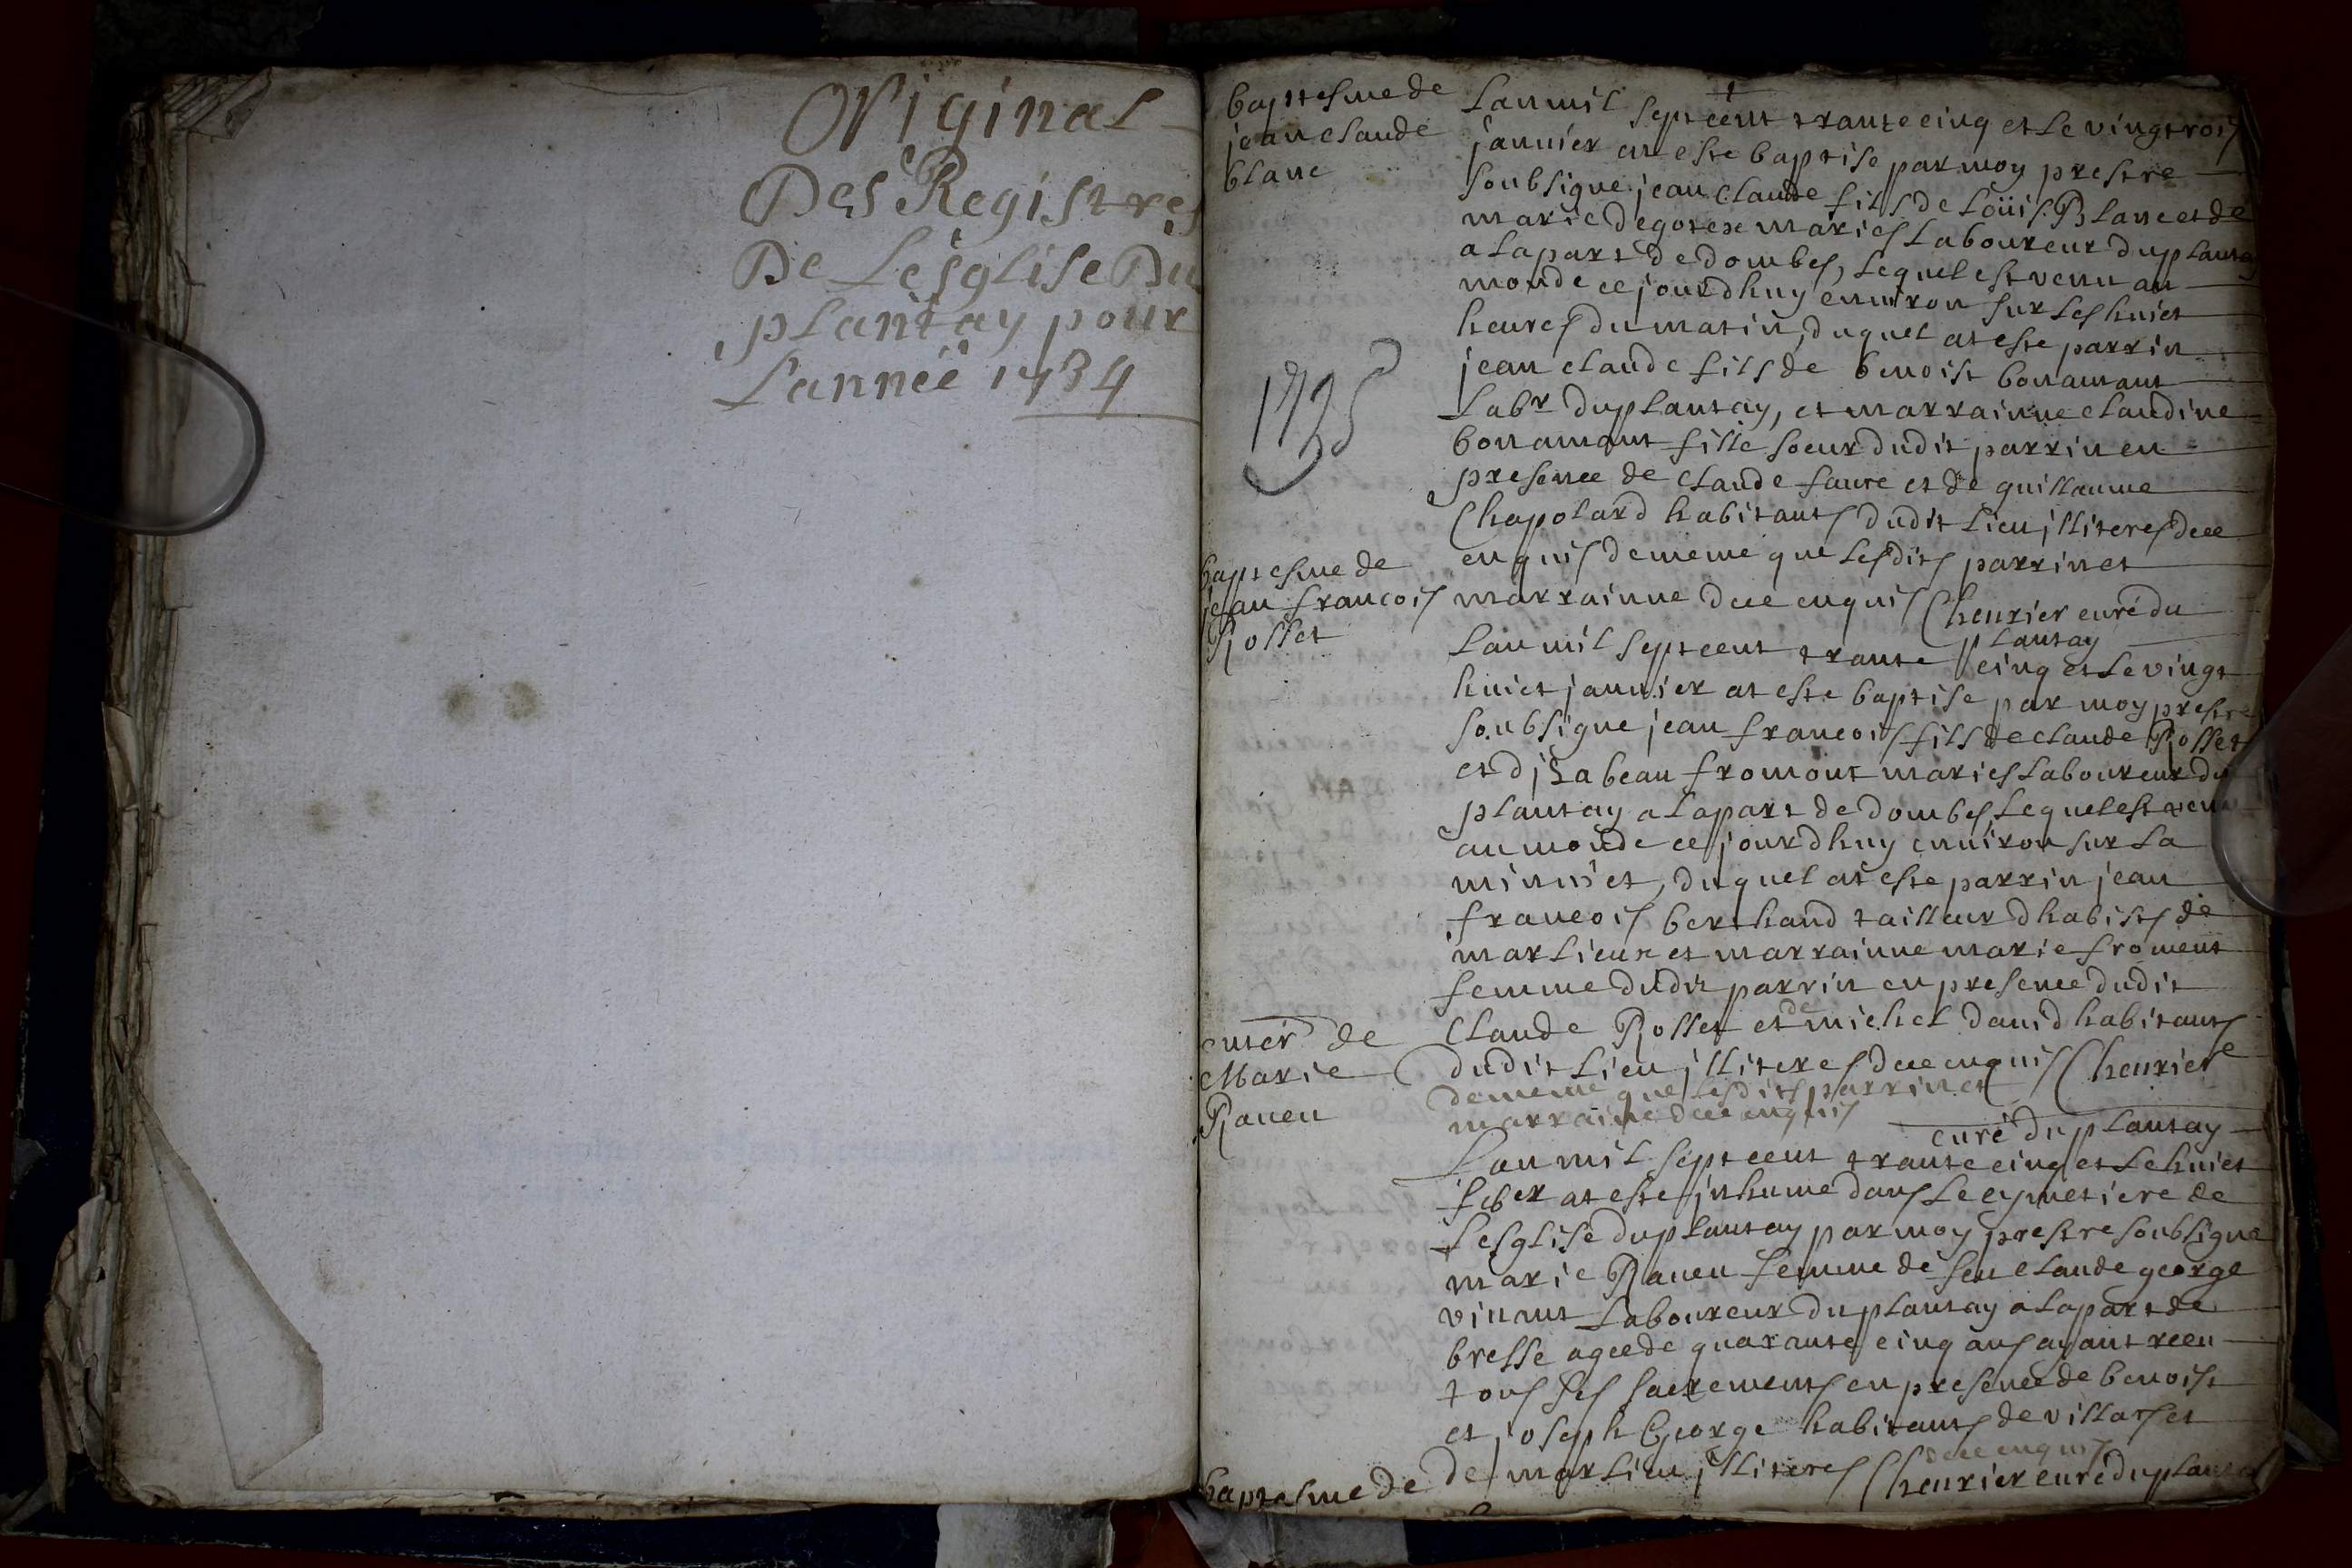 Original
Des Registres
De Lesglise Du
plantay pour
Lannëe 1734
baptesme de
jean claude
blanc
1735
Lan mil sept cent trante cinq et le vingt trois
januier at este baptise par moy prestre
soubsigne jean Claude fils de Loüis Blanc et de
marie degotex maries Laboureur du plantay
a la part de dombes, lequel est venu au
monde ce jourdhuy enuiron sur les huict
heures du matin, duquel at este parrin
jean claude fils de benoist bonamant
Labr du plantay, et marrainne claudine
bonamant fille soeur dudit parrin en
presence de claude faure et de guillaume
Chapolard habitants dudit Lieu jlliteres dece
enquis de meme que lesdits parrin et
marrainne dece enquis Chenrier curé du
plantay
baptesme de
jean francois
Rollet
Lan mil sept cent trante cinq et le vingt
huict januier at este baptise par moy prestre
soubsigne jean francois fils de claude Rollet
et djsabeau fromont maries Laboureur du
plantay a la part de dombes, lequel est venu
au monde ce jourdhuy enuiron sur la
minuict, duquel at este parrin jean
francois berthand tailleur dhabists de
marlieux et marrainne marie froment
femme dudit parrin en presence dudit
Claude Rollet et de michel dauid habitants
dudit Lieu jlliteres dece enquis Chenrier
de meme que lesdits parrin et
marraine dece enquis
curé du plantay
enter de
Marie
Raueu
Lan mil sept cent trante cinq et le huict
feber at este jnhume dans le cymetiere de
Lesglise du plantay par moy prestre soubsigne
marie Raueu femme de feu claude george
vinant Laboureur du plantay a la part de
bresse agee de quarante cinq ans ayant receu
tous ses sacrements en presence de benoist
et joseph George habitants de villars et
de marlieu jlliteres dece enquis Chenrier curé du plantay
baptesme de